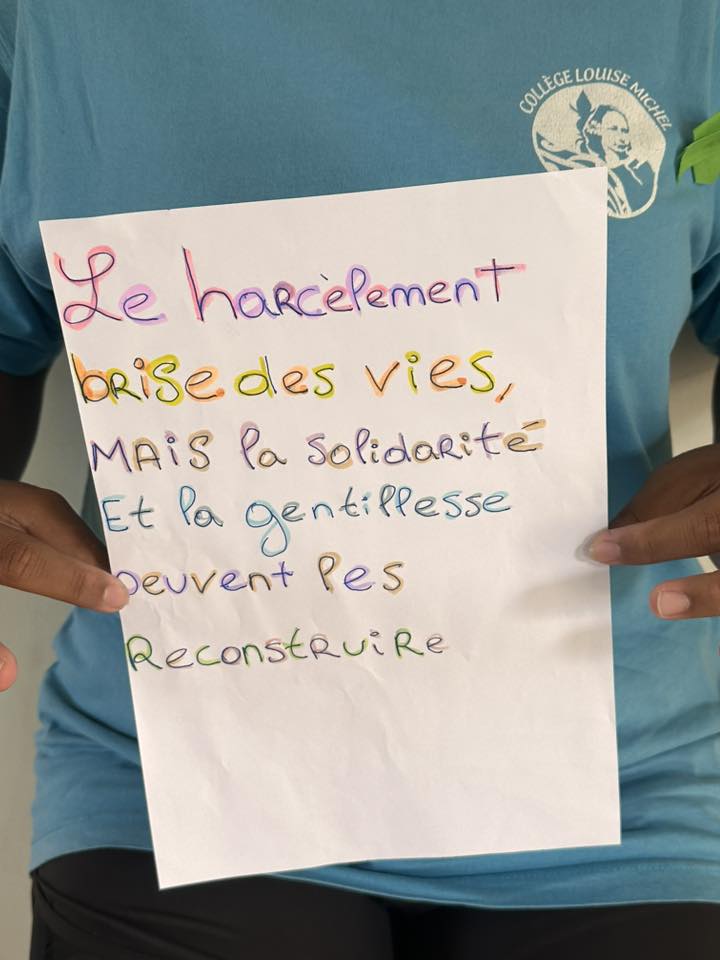 COLLÈGE LOUISE MICHEL
Le harcèlement
brise des vies,
MAiS la solidarité
Et la gentillesse
peuvent les
Reconstruire